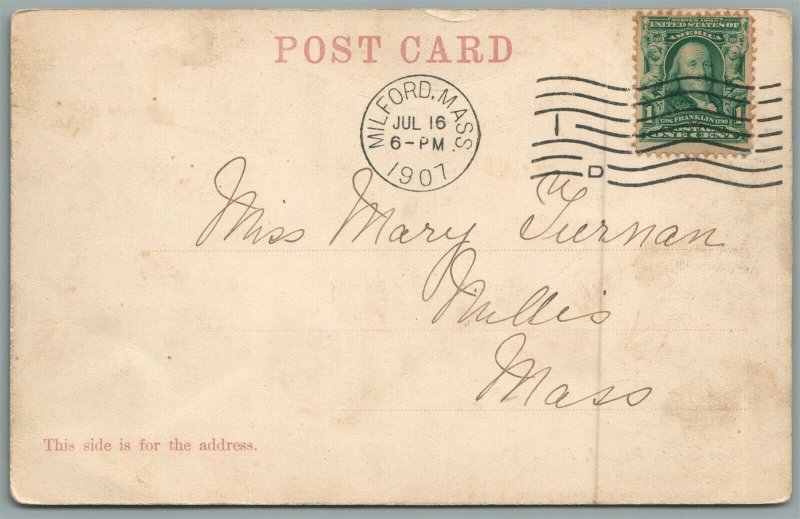 POST CARD
SERIES 1902
UNITED STATES OF
AMERICA
1 1706 FRANKLIN 1790 1
POSTAGE
ONE CENT
MILFORD, MASS.
JUL 16
6-PM
1907
1
D
Miss Mary Tiernan
Millis
Mass
This side is for the address.